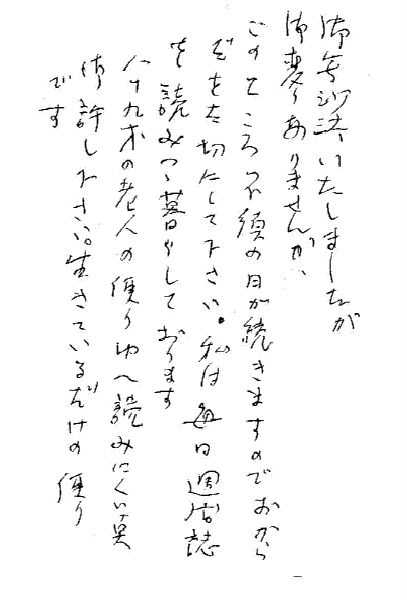 御無沙汰いたしましたが
御変りありませんか、
このところ不順の日が続きますのでおから
だを大切にして下さい。私は毎日週刊誌
を読みつゝ暮らしております
八十九才の老人の便りゆへ読みにくい点
御許し下さい。生きているだけの便り
です